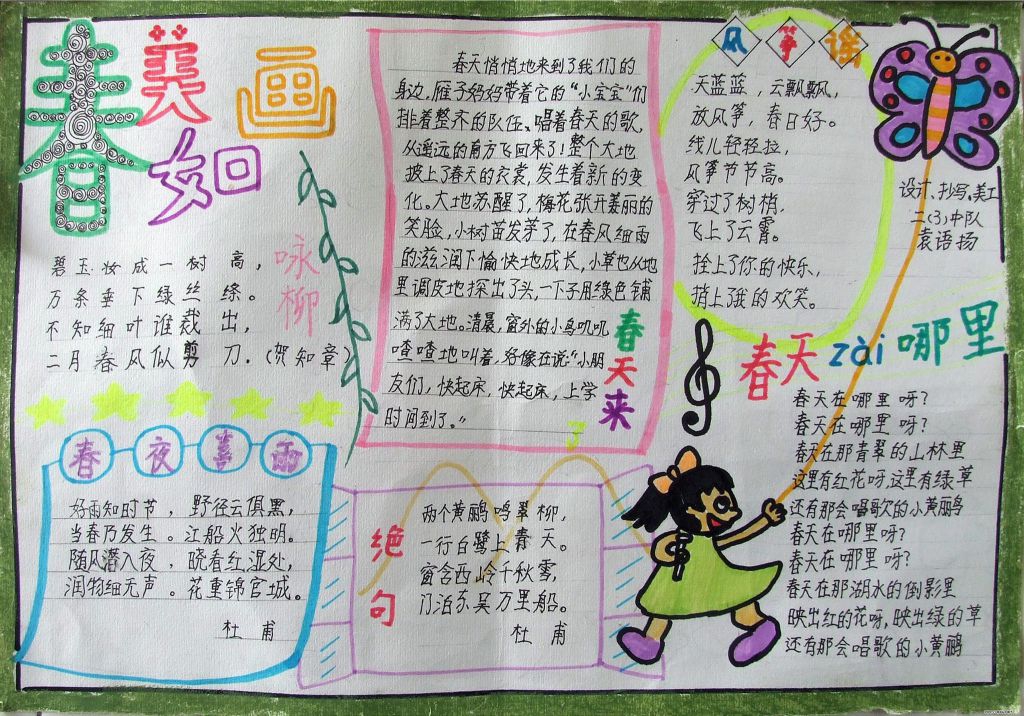 春美如画
咏柳
碧玉妆成一树高，
万条垂下绿丝绦。
不知细叶谁裁出，
二月春风似剪刀。(贺知章)
春夜喜雨
好雨知时节，野径云俱黑，
当春乃发生。江船火独明。
随风潜入夜，晓看红湿处，
润物细无声。花重锦官城。
杜甫
春天来了
春天悄悄地来到了我们的
身边，雁子妈妈带着它的“小宝宝”们
排着整齐的队伍、唱着春天的歌，
从遥远的南方飞回来了！整个大地
披上了春天的衣裳，发生着新的变
化。大地苏醒了，梅花张开美丽的
笑脸，小树苗发芽了，在春风细雨
的滋润下愉快地成长，小草也从地
里调皮地探出了头，一下子用绿色铺
满了大地。清晨，窗外的小鸟叽叽
喳喳地叫着，好像在说“小朋
友们，快起床，快起床，上学
时间到了。”
绝句
两个黄鹂鸣翠柳，
一行白鹭上青天。
窗含西岭千秋雪，
门泊东吴万里船。
杜甫
风筝谣
天蓝蓝，云飘飘，
放风筝，春日好。
线儿轻轻拉，
风筝节节高。
穿过了树梢，
飞上了云霄。
拴上了你的快乐、
捎上了我的欢笑。
设计、抄写、美工
二(3)中队
袁语扬
春天zài哪里
春天在哪里呀？
春天在哪里呀？
春天在那青翠的山林里
这里有红花呀，这里有绿草
还有那会唱歌的小黄鹂
春天在哪里呀？
春天在哪里呀？
春天在那湖水的倒影里
映出红的花呀，映出绿的草
还有那会唱歌的小黄鹂